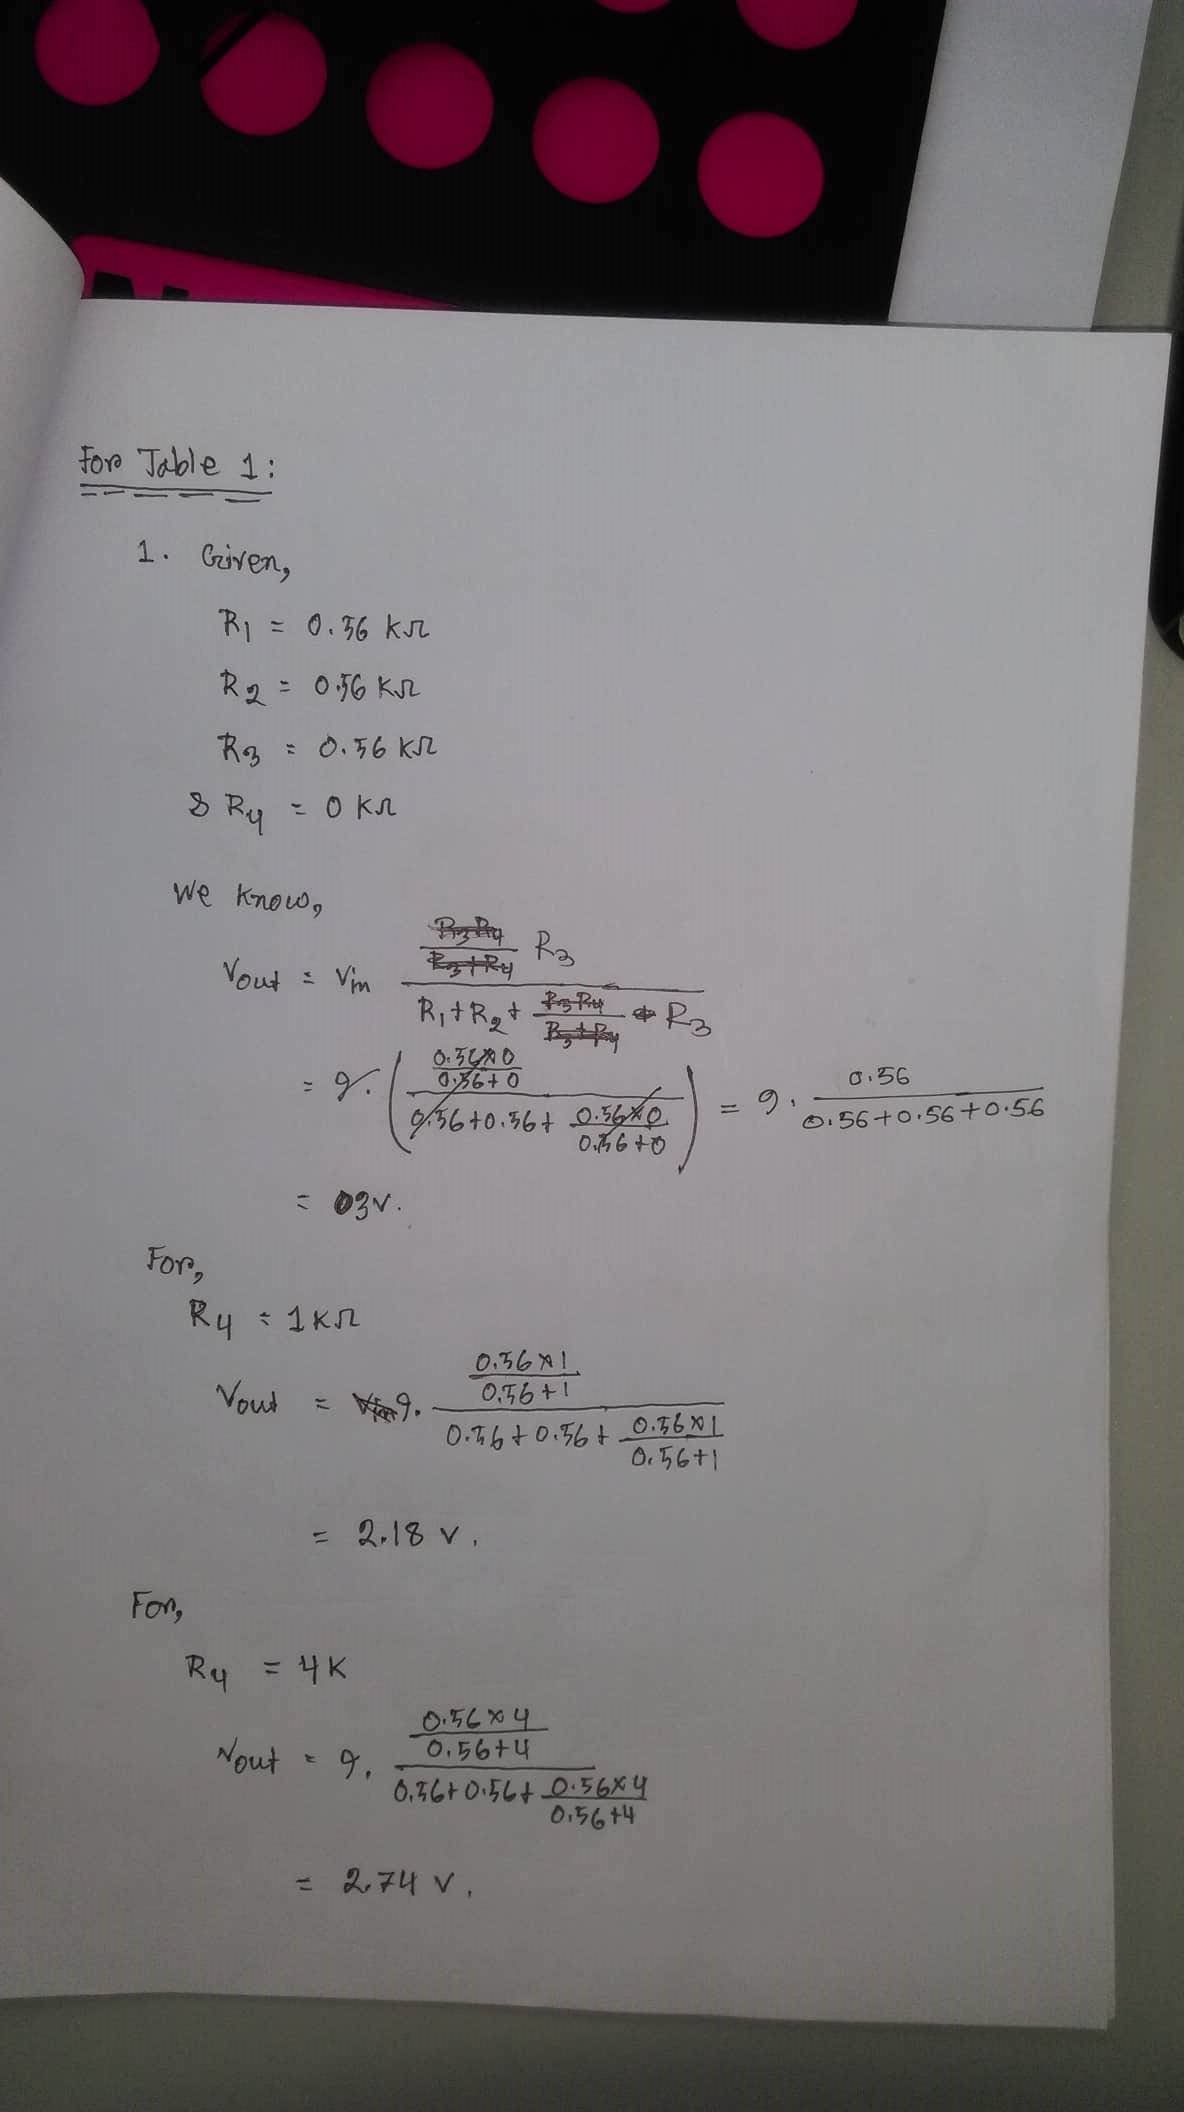 For Table 1:
1. Given,
R1 = 0.56 KΩ
R2 = 0.56 KΩ
R3 = 0.56 KΩ
& R4 = 0 KΩ
We know,
Vout = Vin (R3R4/(R3+R4) R3) / (R1+R2+ R3R4/(R3+R4) R3)
= 9. ((0.56×0)/(0.56+0) / (0.56+0.56+ (0.56×0)/(0.56+0))) = 9. 0.56/(0.56+0.56+0.56)
= 03V.
For,
R4 = 1KΩ
Vout = Vin 9. ((0.56×1)/(0.56+1)) / (0.56+0.56+ (0.56×1)/(0.56+1))
= 2.18 V.
For,
R4 = 4K
Vout = 9. ((0.56×4)/(0.56+4)) / (0.56+0.56+ (0.56×4)/(0.56+4))
= 2.74 V.